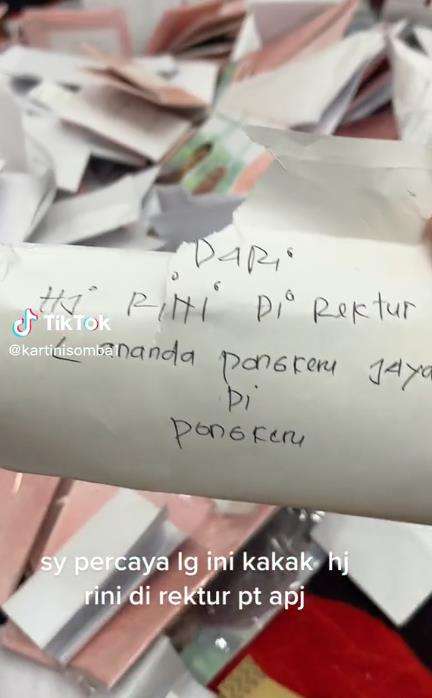 DARI
HJ RINI Di Rektur
TikTok
@kartinisomba1
ananda pongkeru JAYA
Di
pongkeru
sy percaya lg ini kakak hj
rini di rektur pt apj